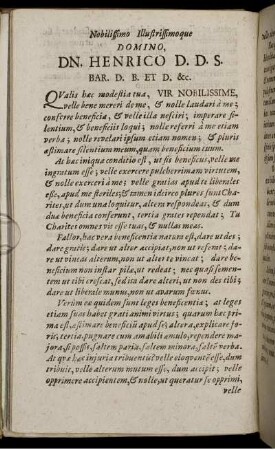 Nobilissimo Illustrissimoque
DOMINO,
DN. HENRICO D. D. S.
BAR. D. B. ET D. &c.
QValis hæc modestia tua, VIR NOBILISSIME,
velle bene mereri de me, & nolle laudari à me;
conferre beneficia, & velle illa nesciri; imperare si-
lentium, & beneficiis loqui; nolle referri à me etiam
verba; nolle revelari ipsum etiam nomen; & pluris
æstimare silentium meum, quam beneficium tuum.
At hæc iniqua conditio est, ut sis beneficus, velle me
ingratum esse; velle exercere pulcherrimam virtutem,
& nolle exerceri à me; velle gratias apud te liberales
esse, apud me steriles; & tamen ideirco plures sunt Cha-
rites, ut dum una loquitur, altera respondeat, & dum
dua beneficia conferunt, tertia grates rependat; Tu
Charites omnes vis esse tuas, & nullas meas.
Fallor, hæc vera beneficentiæ natura est, dare ut des;
dare gratis; dare ut alter accipiat, non ut referat; da-
re ut vincas alterum, non ut alter te vincat; dare be-
neficium non instar pilæ, ut redeat; nec quasi semen-
tem ut tibi crescat, sed ita dare alteri, ut non des tibi;
dare ut liberale munus, non ut avarum fœnus.
Verùm eæ quidem sunt leges beneficentiæ; at leges
etiam suas habet grati animi virtus; quarum hæc pri-
ma est, æstimare beneficiū apud se; altera, explicare fo-
ris; tertia, pugnare cum amabili æmulo, rependere ma-
jora, si possit, saltem paria, saltem minora, saltē verba.
At quæ hæc injuria tribuentis? velle eloquentē esse, dum
tribuit, velle alterum mutum esse, dum accipit; velle
opprimere accipientem, & nolle, ut queratur se opprimi,
velle